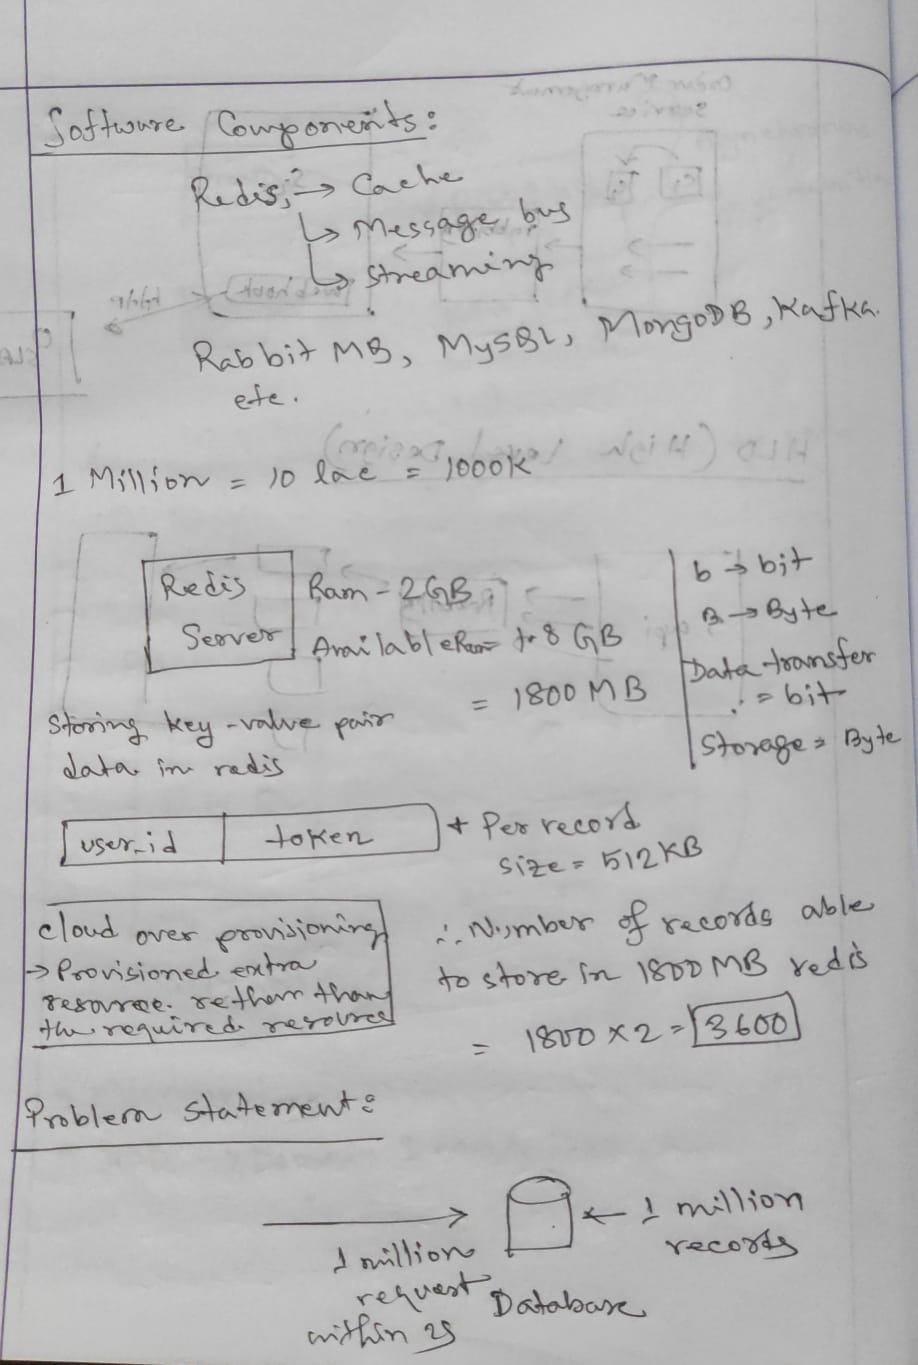 Software Components:
Redis; → Cache
↳ Message bus
↳ Streaming
Rabbit MQ, MySQL, MongoDB, Kafka.
etc.
1 Million = 10 lac = 1000K
Redis
Server
Ram - 2GB
Available Ram 1.8 GB
= 1800 MB
b → bit
B → Byte
Data transfer
= bit
Storage = Byte
Storing key-value pair
data in redis
user_id | token
+ Per record
size = 512KB
Cloud over provisioning
→ Provisioned extra
resource. rethar than
the required resource
∴ Number of records able
to store in 1800 MB redis
= 1800 × 2 = 3600
Problem Statement:
1 million
request
within 2s
Database
← 1 million
records